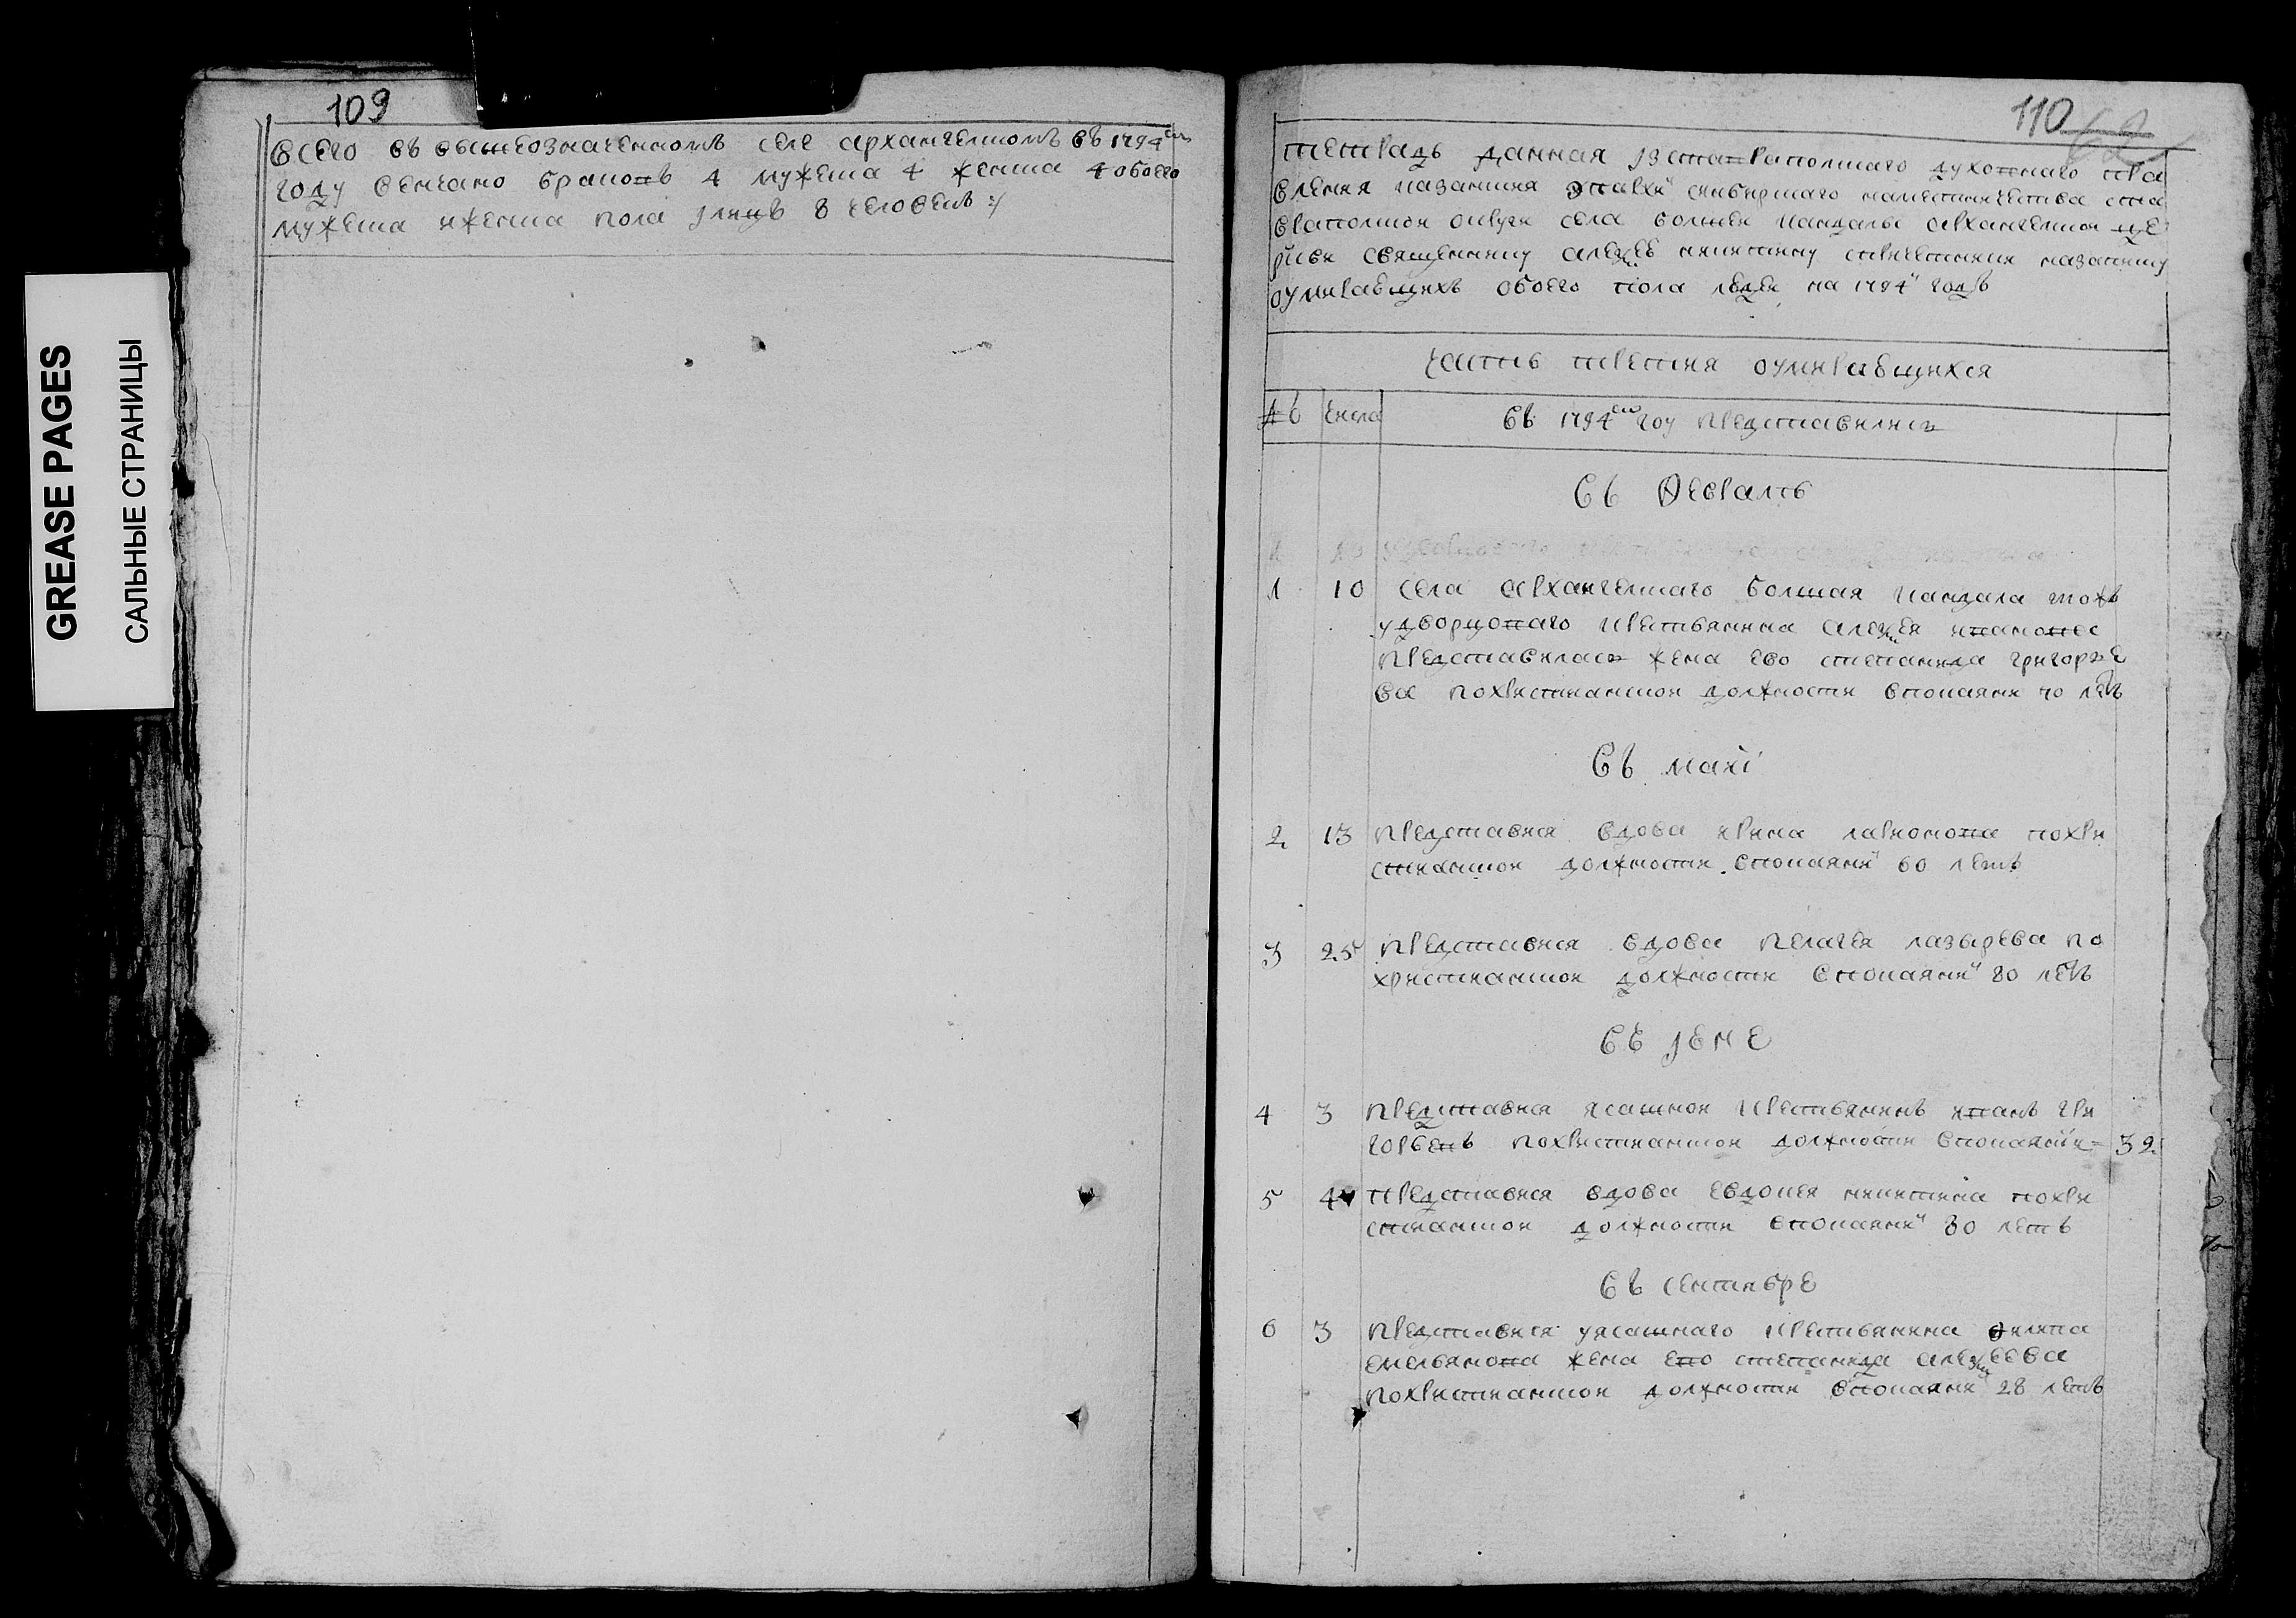 GREASE PAGES
САЛЬНЫЕ СТРАНИЦЫ
109
всего въ вышеозначенномъ селе архангелскомъ въ 1794ом
году венчано браковъ 4 мужеска 4 женска 4 обоего
мужеска иженска пола лицъ 8 человекъ
110
62
тетрадь данная изставраполскаго духовнаго пра
вления казанския епархи синбирскаго наместничества ста
враполской округи села болшей кандалы архангелской це
ркви священнику алексею никитину причетники назаписку
оумирающихъ обоего пола людей на 1794 годъ
часть третия оумирающихся
№ числа въ 1794ом году представились
въ Феврале
1 10 села архангелскаго болшая кандала тожъ
удворцоваго крестьянина алексея иванова
представилась жена ево степанида григорье
ва похристианской должности впокаяни 70 летъ
въ маиї
2 13 представися вдова ирина ларионова похри
стианской должности впокаяни 60 летъ
3 25 представися вдова пелагея лазырева по
христианской должности впокаяни 80 летъ
въ июне
4 3 представися ясашной крестьянинъ иванъ гри
горьевъ похристианской должности впокаянии= 39
5 4 представися вдова евдокея никитина похри
стианской должности впокаяни 80 летъ
въ сентябре
6 3 представися уясашнаго крестьянина филипа
емельянова жена ево степанида алексеева
похристианской должности впокаяни 28 летъ